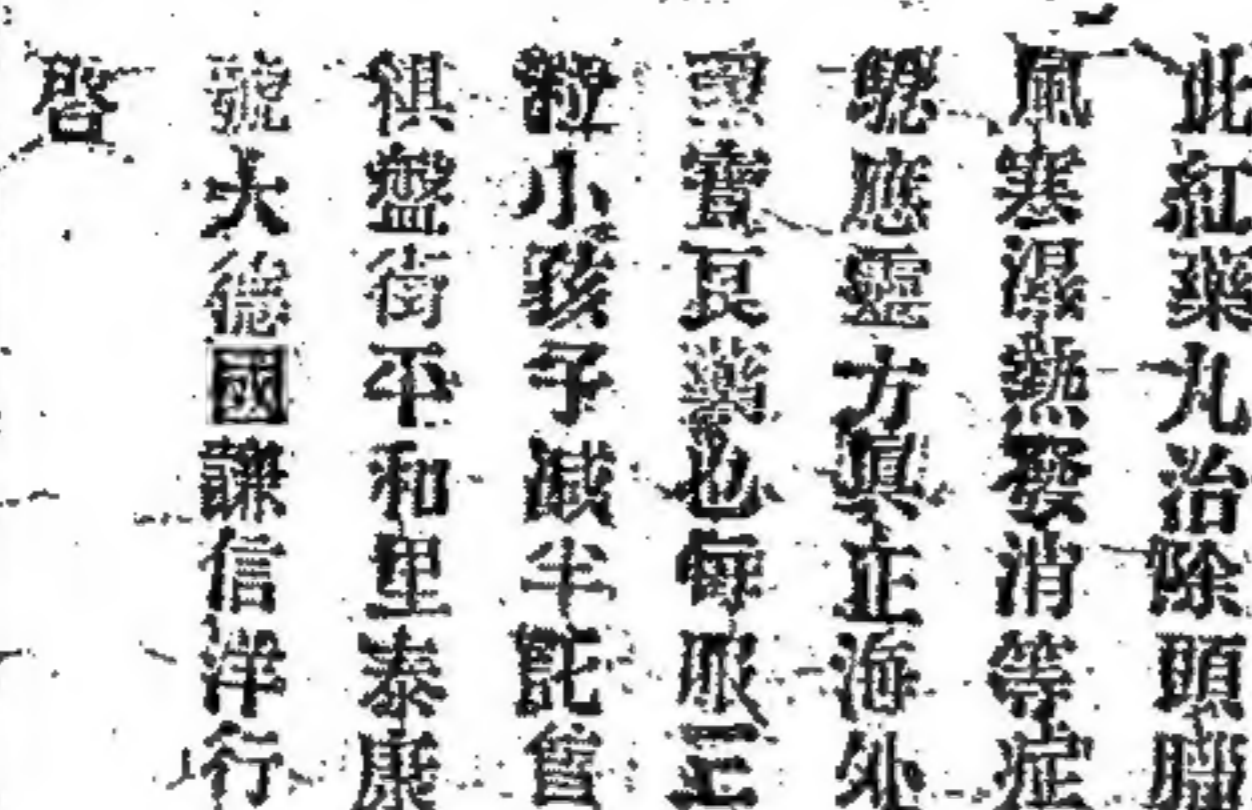 此紅藥丸治除頭腦
風寒濕熱發消等症
應靈方眞正海外
寶貝藥也每服三
粒小孩子減半託售
棋盤街平和里泰康
號大德國謙信洋行
啓